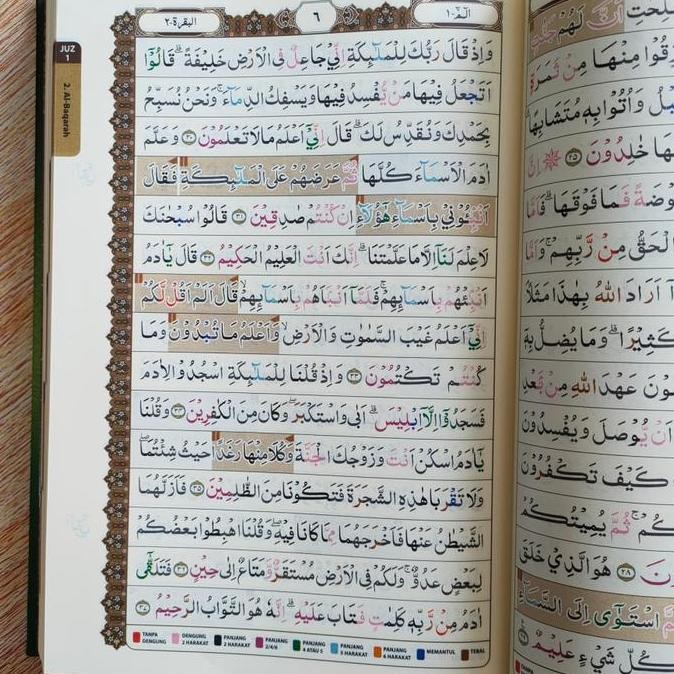 البقرة ٢
٦
الٓمّٓ ١
JUZ
1
2. Al-Baqarah
وَاِذْ قَالَ رَبُّكَ لِلْمَلٰۤىِٕكَةِ اِنِّيْ جَاعِلٌ فِى الْاَرْضِ خَلِيْفَةً ۗ قَالُوْٓا
اَتَجْعَلُ فِيْهَا مَنْ يُّفْسِدُ فِيْهَا وَيَسْفِكُ الدِّمَاۤءَۚ وَنَحْنُ نُسَبِّحُ
بِحَمْدِكَ وَنُقَدِّسُ لَكَ ۗ قَالَ اِنِّيْٓ اَعْلَمُ مَا لَا تَعْلَمُوْنَ ٣٠ وَعَلَّمَ
اٰدَمَ الْاَسْمَاۤءَ كُلَّهَا ثُمَّ عَرَضَهُمْ عَلَى الْمَلٰۤىِٕكَةِ فَقَالَ
اَنْۢبِـُٔوْنِيْ بِاَسْمَاۤءِ هٰٓؤُلَاۤءِ اِنْ كُنْتُمْ صٰدِقِيْنَ ٣١ قَالُوْا سُبْحٰنَكَ
لَا عِلْمَ لَنَآ اِلَّا مَا عَلَّمْتَنَا ۗاِنَّكَ اَنْتَ الْعَلِيْمُ الْحَكِيْمُ ٣٢ قَالَ يٰٓاٰدَمُ
اَنْۢبِئْهُمْ بِاَسْمَاۤىِٕهِمْ ۚ فَلَمَّآ اَنْۢبَاَهُمْ بِاَسْمَاۤىِٕهِمْۙ قَالَ اَلَمْ اَقُلْ لَّكُمْ
اِنِّيْٓ اَعْلَمُ غَيْبَ السَّمٰوٰتِ وَالْاَرْضِۙ وَاَعْلَمُ مَا تُبْدُوْنَ وَمَا
كُنْتُمْ تَكْتُمُوْنَ ٣٣ وَاِذْ قُلْنَا لِلْمَلٰۤىِٕكَةِ اسْجُدُوْا لِاٰدَمَ
فَسَجَدُوْٓا اِلَّآ اِبْلِيْسَۗ اَبٰى وَاسْتَكْبَرَۖ وَكَانَ مِنَ الْكٰفِرِيْنَ ٣٤ وَقُلْنَا
يٰٓاٰدَمُ اسْكُنْ اَنْتَ وَزَوْجُكَ الْجَنَّةَ وَكُلَا مِنْهَا رَغَدًا حَيْثُ شِئْتُمَاۖ
وَلَا تَقْرَبَا هٰذِهِ الشَّجَرَةَ فَتَكُوْنَا مِنَ الظّٰلِمِيْنَ ٣٥ فَاَزَلَّهُمَا
الشَّيْطٰنُ عَنْهَا فَاَخْرَجَهُمَا مِمَّا كَانَا فِيْهِۖ وَقُلْنَا اهْبِطُوْا بَعْضُكُمْ
لِبَعْضٍ عَدُوٌّ ۚ وَلَكُمْ فِى الْاَرْضِ مُسْتَقَرٌّ وَّمَتَاعٌ اِلٰى حِيْنٍ ٣٦ فَتَلَقّٰٓى
اٰدَمُ مِنْ رَّبِّهٖ كَلِمٰتٍ فَتَابَ عَلَيْهِ ۗ اِنَّهٗ هُوَ التَّوَّابُ الرَّحِيْمُ ٣٧
TANPA DENGUNG
DENGUNG 2 HARAKAT
PANJANG 2 HARAKAT
PANJANG 2/4/6
PANJANG 4 ATAU 5
PANJANG 5 HARAKAT
PANJANG 6 HARAKAT
MEMANTUL
TEBAL
لَهُمْ
مِنْهَا مِنْ
وَاُتُوْا بِهٖ مُتَشَابِهًا
خٰلِدُوْنَ ٢٥
فَمَا فَوْقَهَا ۗ فَاَمَّا
الْحَقُّ مِنْ رَّبِّهِمْ ۚ وَاَمَّا
اَرَادَ اللّٰهُ بِهٰذَا مَثَلًا
كَثِيْرًا ۗ وَمَا يُضِلُّ بِهٖٓ
عَهْدَ اللّٰهِ مِنْۢ بَعْدِ
اَنْ يُّوْصَلَ وَيُفْسِدُوْنَ
كَيْفَ تَكْفُرُوْنَ
ثُمَّ يُمِيْتُكُمْ
٢٨ هُوَ الَّذِيْ خَلَقَ
اسْتَوٰٓى اِلَى السَّمَاۤءِ
شَيْءٍ عَلِيْمٌ